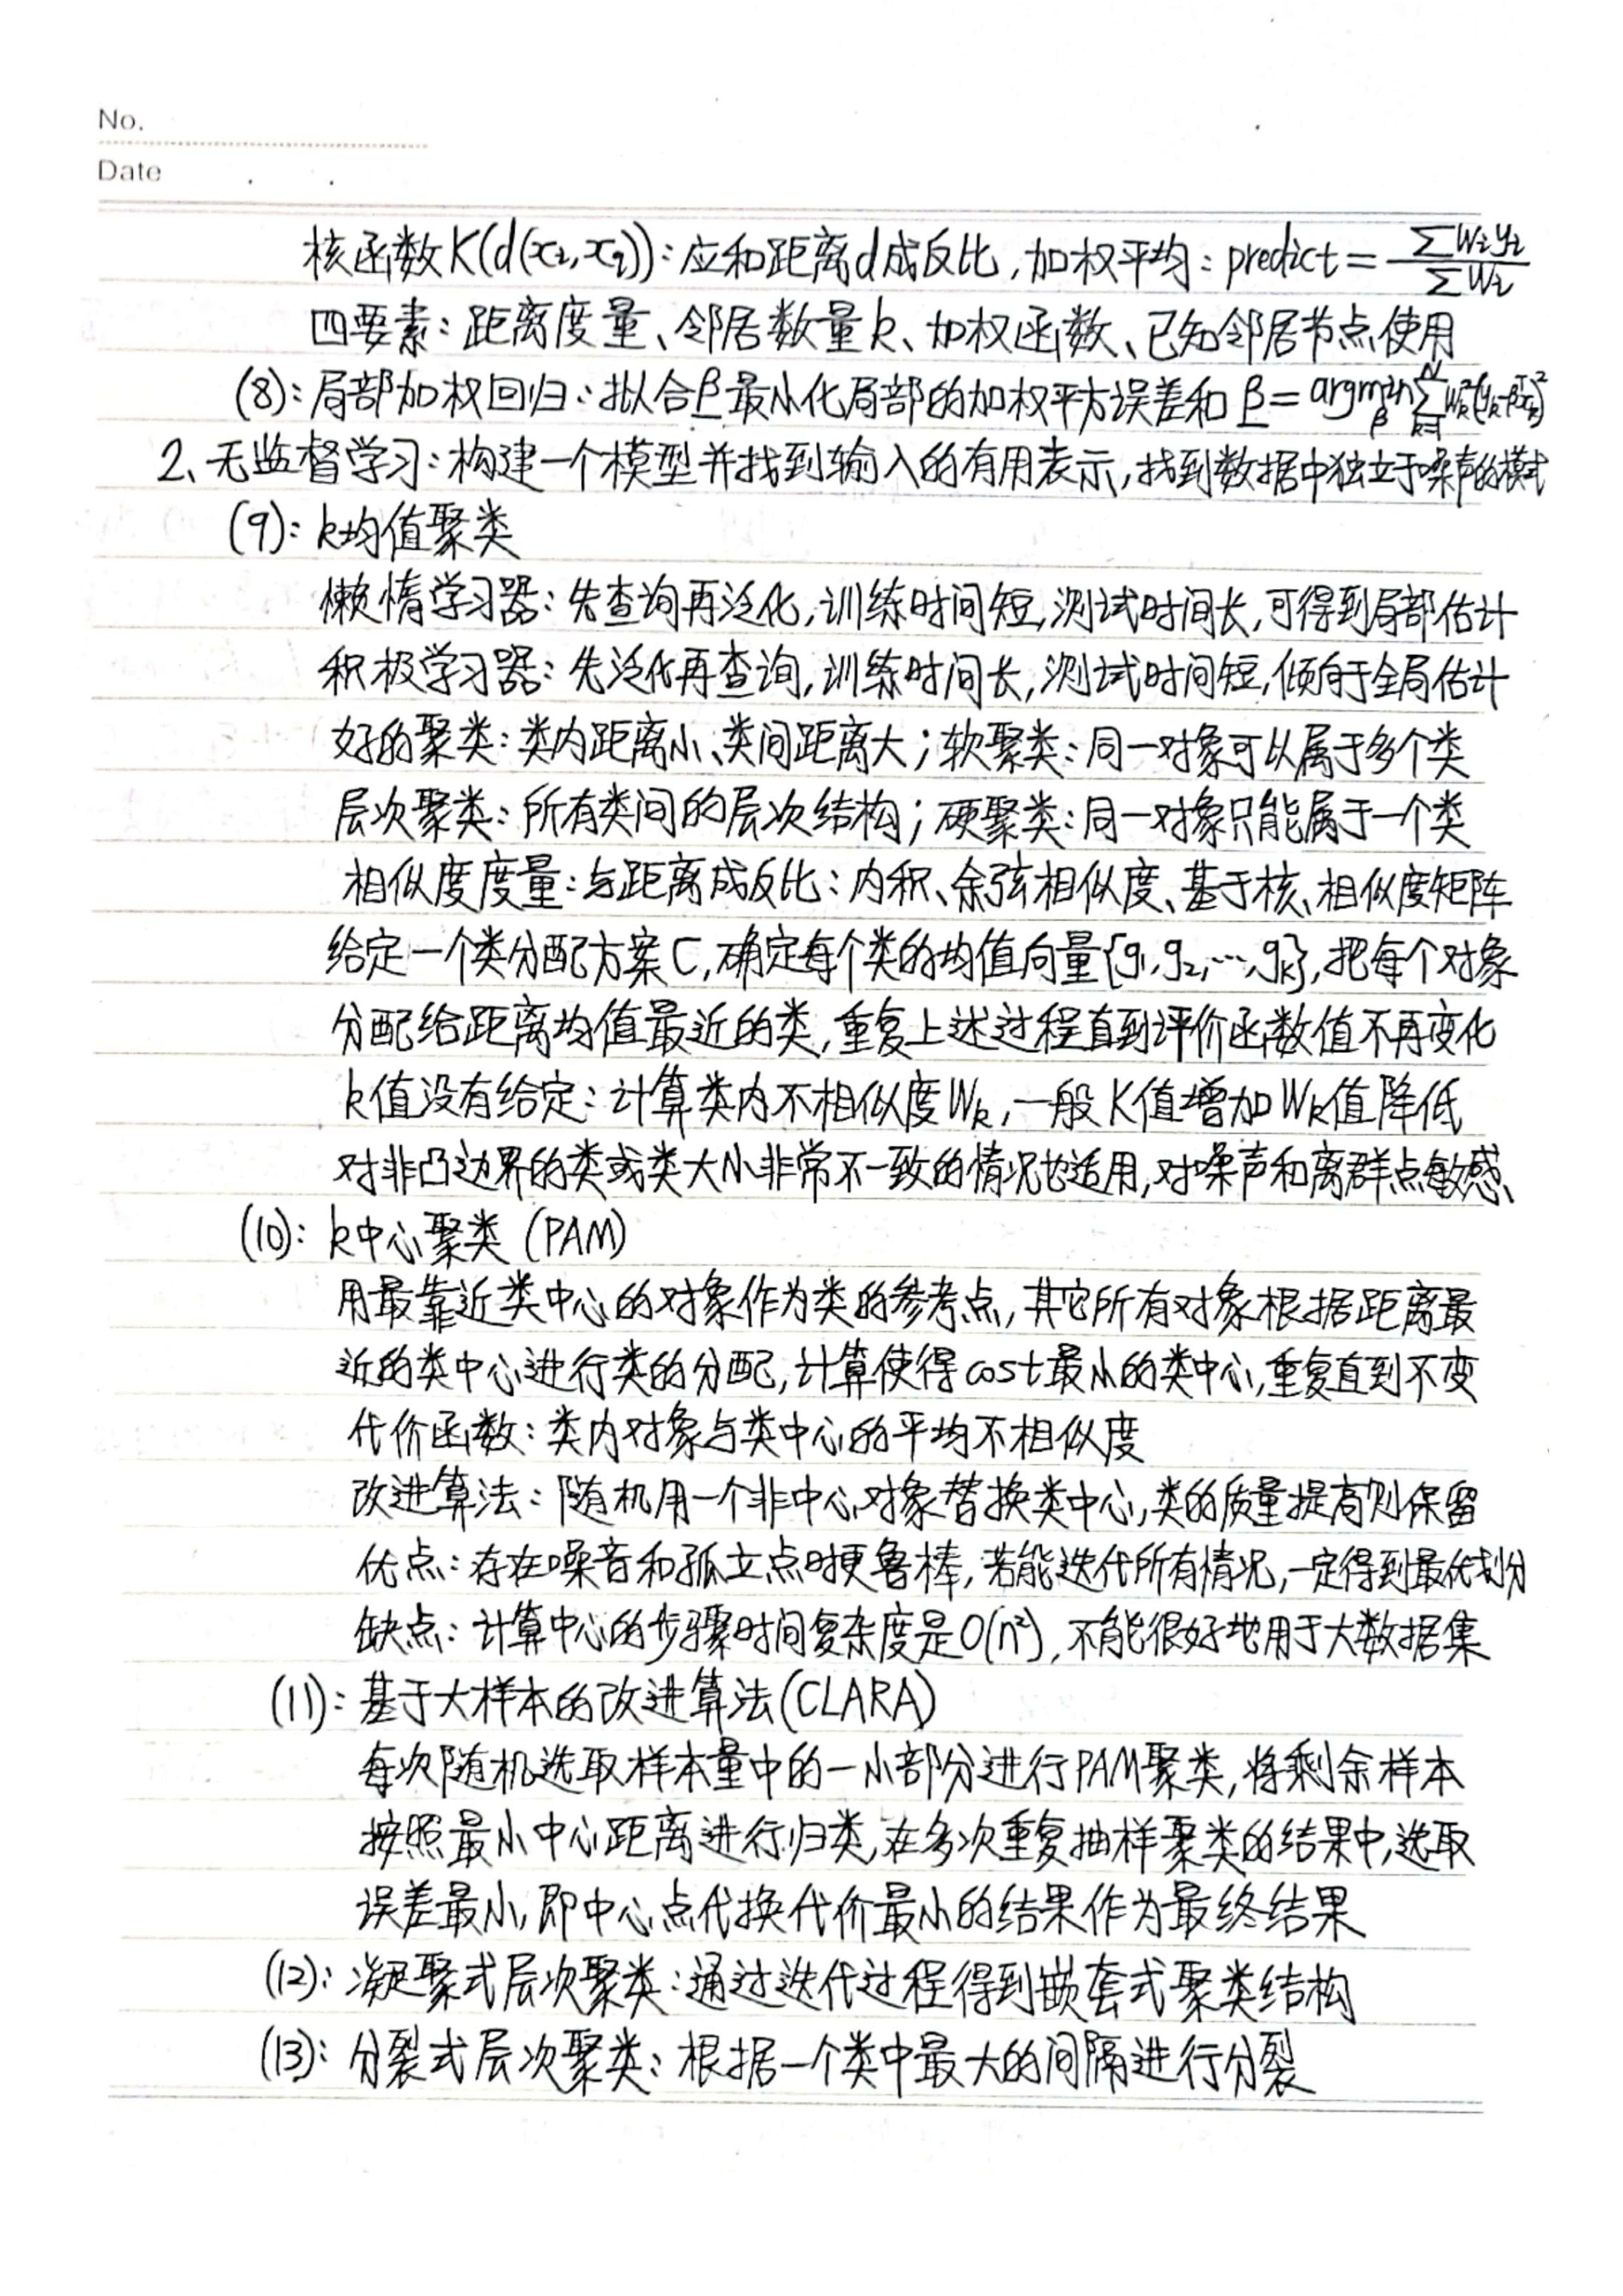 No.
Date
核函数K(d(xi,xq)):应和距离d成反比,加权平均:predict=∑wiyi/∑wi
四要素:距离度量、邻居数量k、加权函数、已知邻居节点使用
(8):局部加权回归:拟合β最小化局部的加权平方误差和 β=argmin_β∑_{k=1}^{N}w_k²(y_k-βᵀx_k)²
2、无监督学习:构建一个模型并找到输入的有用表示,找到数据中独立于噪声的模式
(9):k均值聚类
懒惰学习器:先查询再泛化,训练时间短,测试时间长,可得到局部估计
积极学习器:先泛化再查询,训练时间长,测试时间短,倾向于全局估计
好的聚类:类内距离小、类间距离大;软聚类:同一对象可以属于多个类
层次聚类:所有类间的层次结构;硬聚类:同一对象只能属于一个类
相似度度量:与距离成反比:内积、余弦相似度、基于核、相似度矩阵
给定一个类分配方案C,确定每个类的均值向量{g1,g2,…,gk},把每个对象
分配给距离均值最近的类,重复上述过程直到评价函数值不再变化
k值没有给定:计算类内不相似度Wk,一般K值增加Wk值降低
对非凸边界的类或类大小非常不一致的情况也适用,对噪声和离群点敏感、
(10):k中心聚类(PAM)
用最靠近类中心的对象作为类的参考点,其它所有对象根据距离最
近的类中心进行类的分配,计算使得cost最小的类中心,重复直到不变
代价函数:类内对象与类中心的平均不相似度
改进算法:随机用一个非中心对象替换类中心,类的质量提高则保留
优点:存在噪音和孤立点时更鲁棒,若能迭代所有情况,一定得到最优划分
缺点:计算中心的步骤时间复杂度是O(n²),不能很好地用于大数据集
(11):基于大样本的改进算法(CLARA)
每次随机选取样本量中的一小部分进行PAM聚类,将剩余样本
按照最小中心距离进行归类,在多次重复抽样聚类的结果中,选取
误差最小,即中心点代换代价最小的结果作为最终结果
(12):凝聚式层次聚类:通过迭代过程得到嵌套式聚类结构
(13):分裂式层次聚类:根据一个类中最大的间隔进行分裂